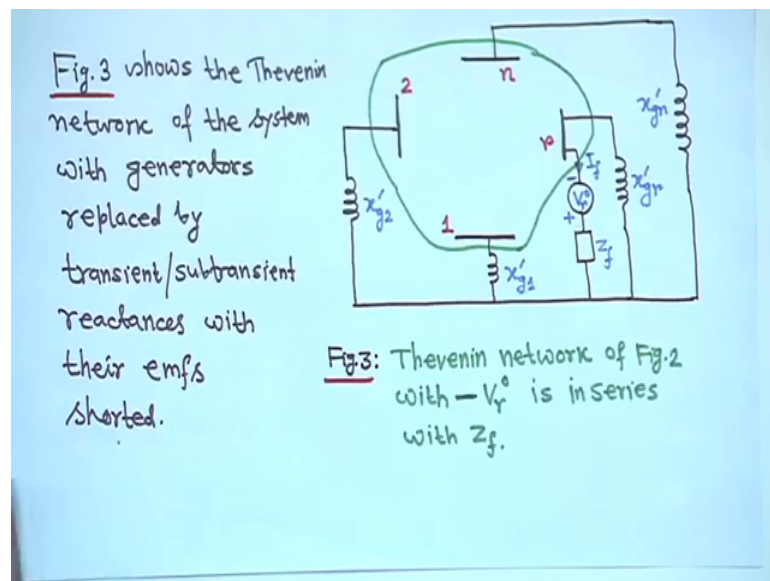 Fig. 3 shows the Thevenin
network of the system
with generators
replaced by
transient/subtransient
reactances with
their emfs
shorted.
n
2
r
1
x'gn
x'g2
x'gr
x'g1
If
Vr°
−
+
Zf
Fig.3: Thevenin network of Fig.2
with − Vr° is in series
with Zf.